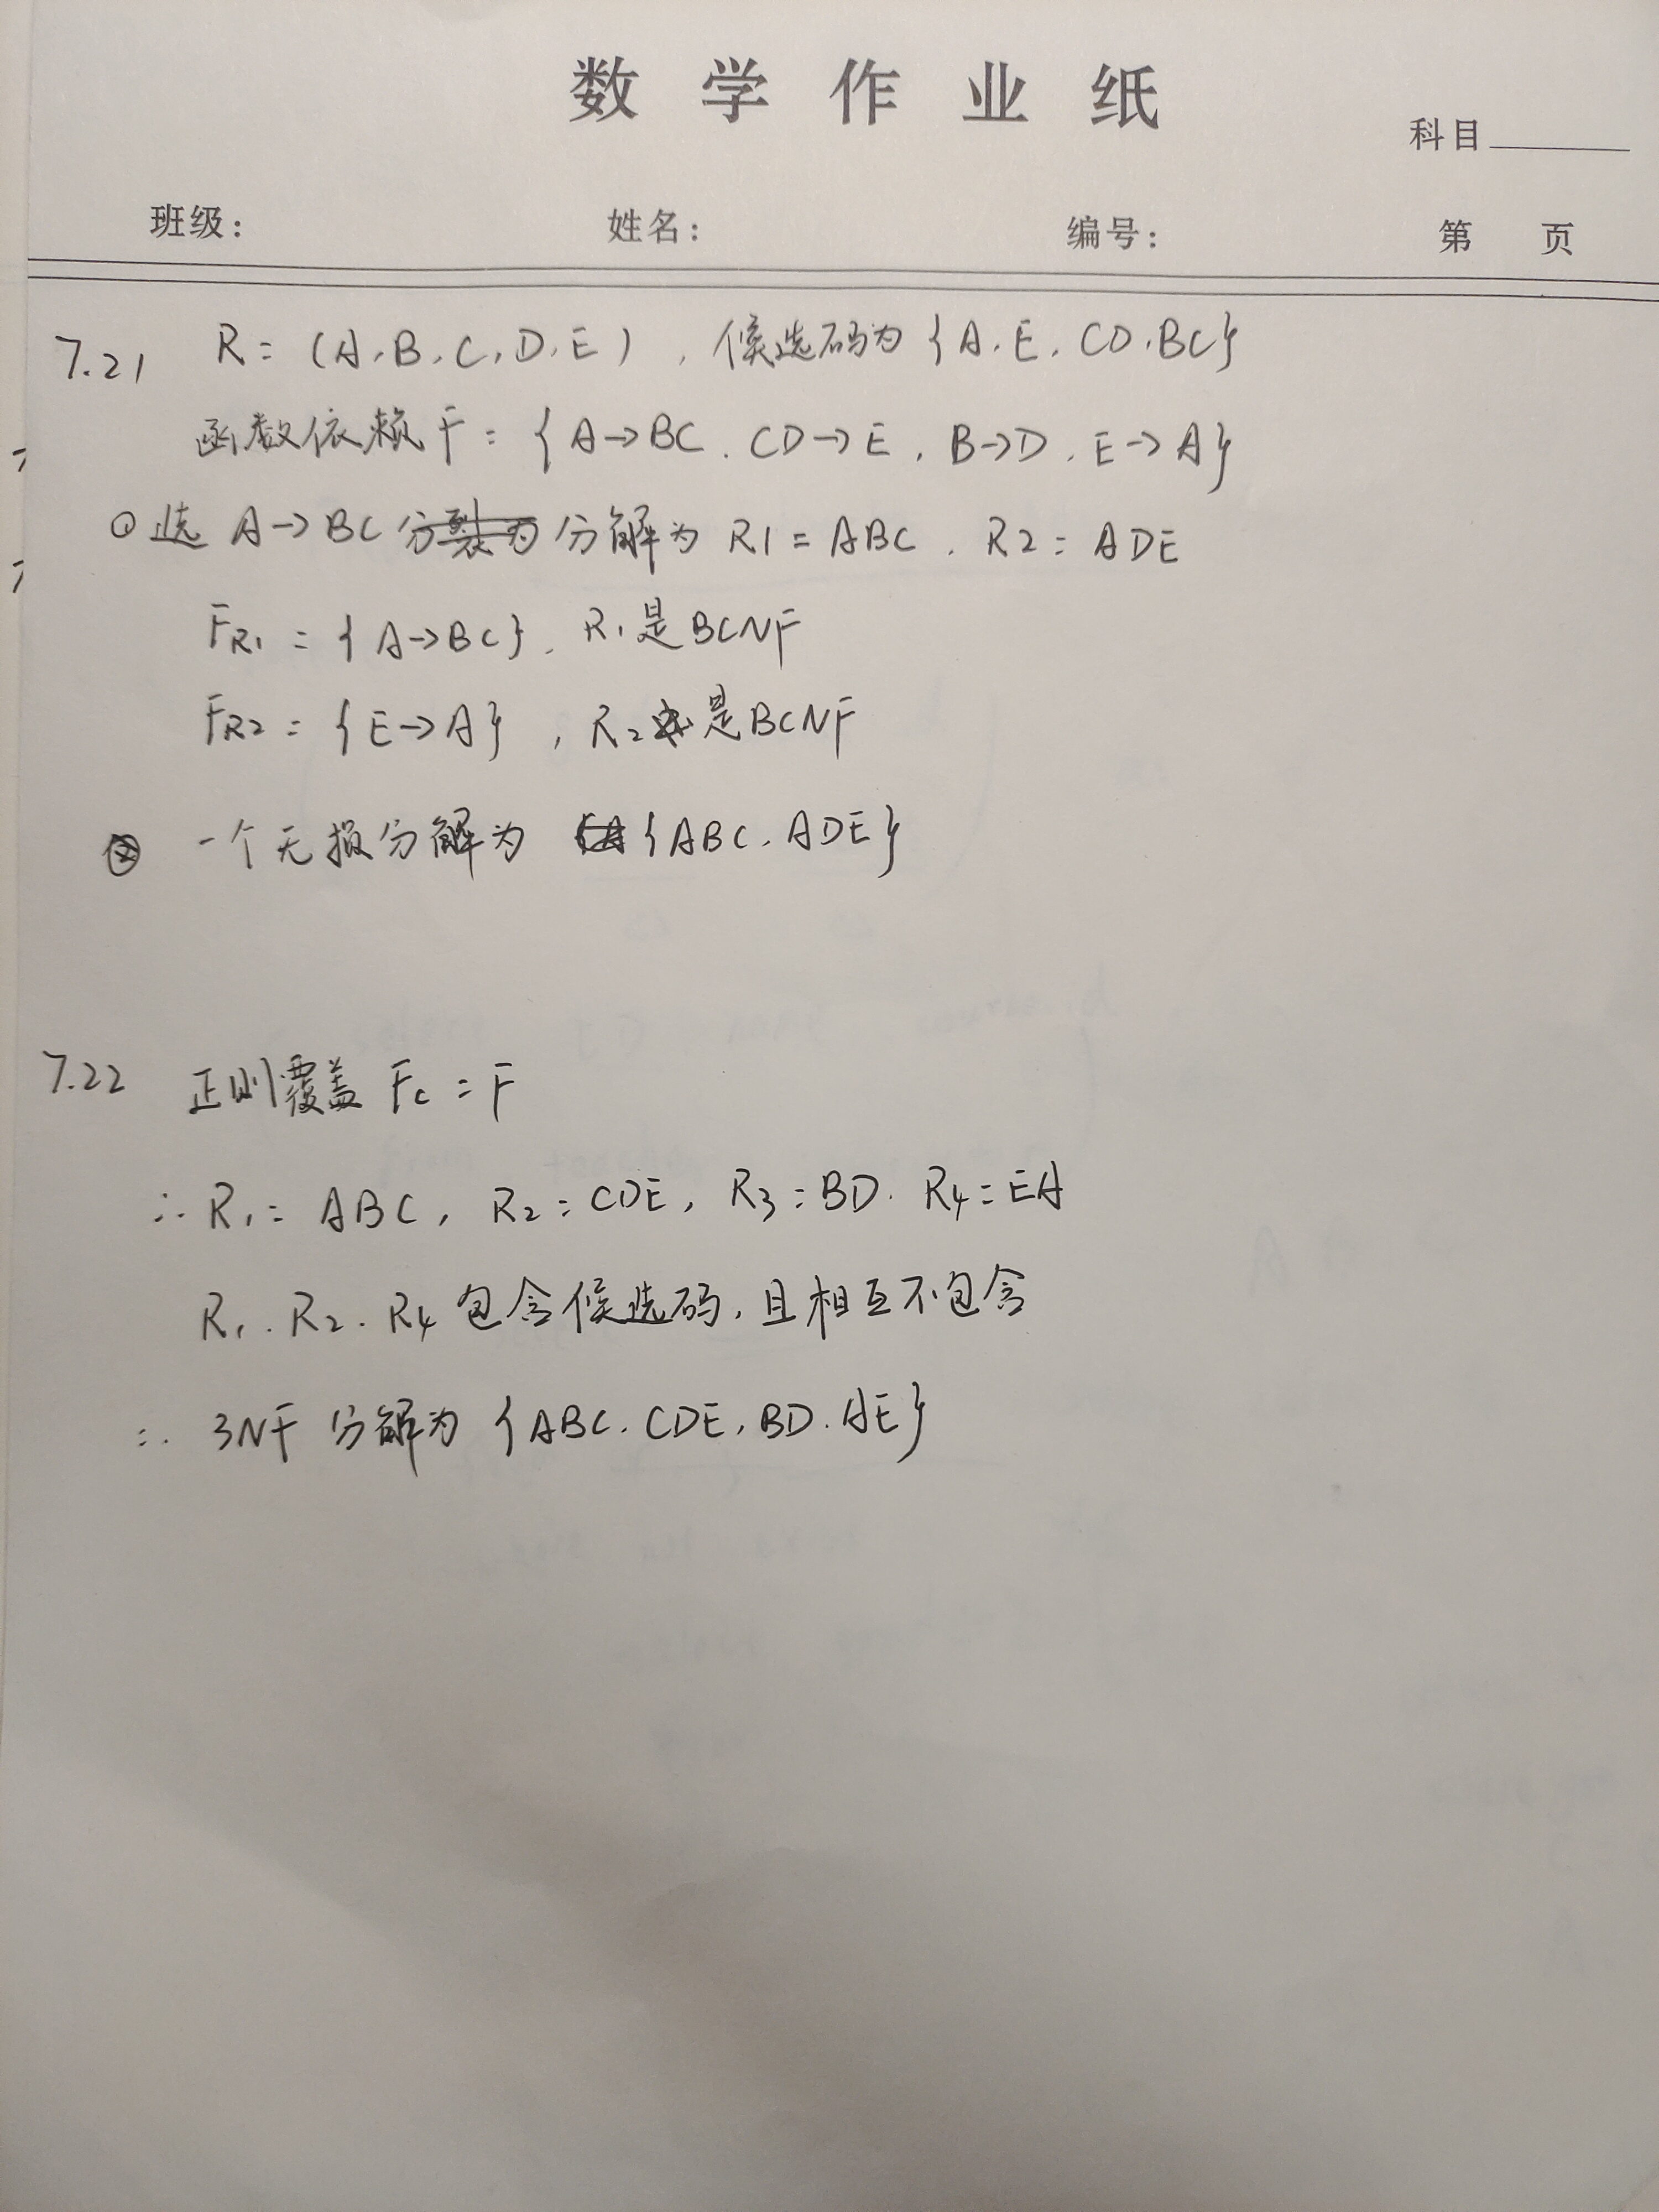 数学作业纸
科目
班级: 姓名: 编号: 第 页
7.21 R = (A, B, C, D, E), 候选码为 {A, E, CD, BC}
函数依赖 F = {A→BC, CD→E, B→D, E→A}
① 选 A→BC 分裂为 分解为 R1 = ABC, R2 = ADE
FR1 = {A→BC}, R1是BCNF
FR2 = {E→A}, R2是BCNF
② 一个无损分解为 {ABC, ADE}
7.22 正则覆盖 Fc = F
∴ R1 = ABC, R2 = CDE, R3 = BD, R4 = EA
R1, R2, R4 包含候选码, 且相互不包含
∴ 3NF 分解为 {ABC, CDE, BD, AE}